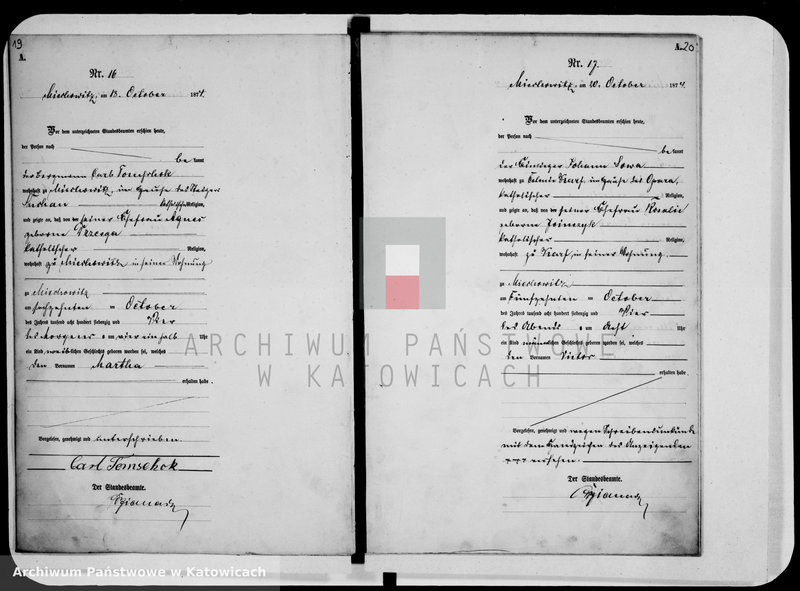 19
A.
Nr. 16
Miechowitz, am 13. October 1874.
Vor dem unterzeichneten Standesbeamten erschien heute,
der Person nach
bekannt
der Bergmann Carl Tomschok
wohnhaft zu Miechowitz, im Hause des
katholischer Religion,
und zeigte an, daß von der seiner Ehefrau Agnes
geborene
katholischer Religion,
wohnhaft zu Miechowitz in seiner Wohnung
zu Miechowitz
am October
des Jahres tausend acht hundert siebenzig und Vier
des Morgens um vier ein halb Uhr
ein Kind weiblichen Geschlechts geboren worden sei, welches
den Vornamen Martha
erhalten habe.
Vorgelesen, genehmigt und unterschrieben.
Carl Tomschok
Der Standesbeamte.
A. 20
Nr. 17.
Miechowitz, am 20. October 1874.
Vor dem unterzeichneten Standesbeamten erschien heute,
der Person nach
bekannt
der Johann Sowa
wohnhaft zu Colonie Karf, im Hause des Opara,
katholischer Religion,
und zeigte an, daß von der seiner Ehefrau Rosalie
geborene
katholischer Religion,
wohnhaft zu Karf, in seiner Wohnung.
zu Miechowitz
am Fünfzehnten October
des Jahres tausend acht hundert siebenzig und Vier
des Abends um Acht Uhr
ein Kind männlichen Geschlechts geboren worden sei, welches
den Vornamen Victor
erhalten habe.
Vorgelesen, genehmigt und wegen Schreibensunkunde
mit dem Handzeichen des Anzeigenden
+++ versehen.
Der Standesbeamte.
ARCHIWUM PAŃSTWOWE
W KATOWICACH
Archiwum Państwowe w Katowicach